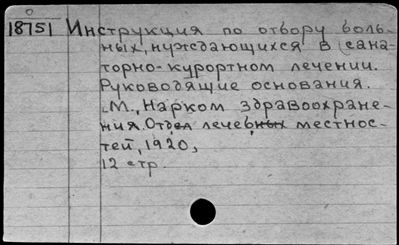 18751 Инструкция по отбору боль-
ных, нуждающихся в сана-
торно-курортном лечении.
Руководящие основания.
М., Нарком здравоохране-
ния. Отдел лечебных местнос-
тей, 1920,
12 стр.